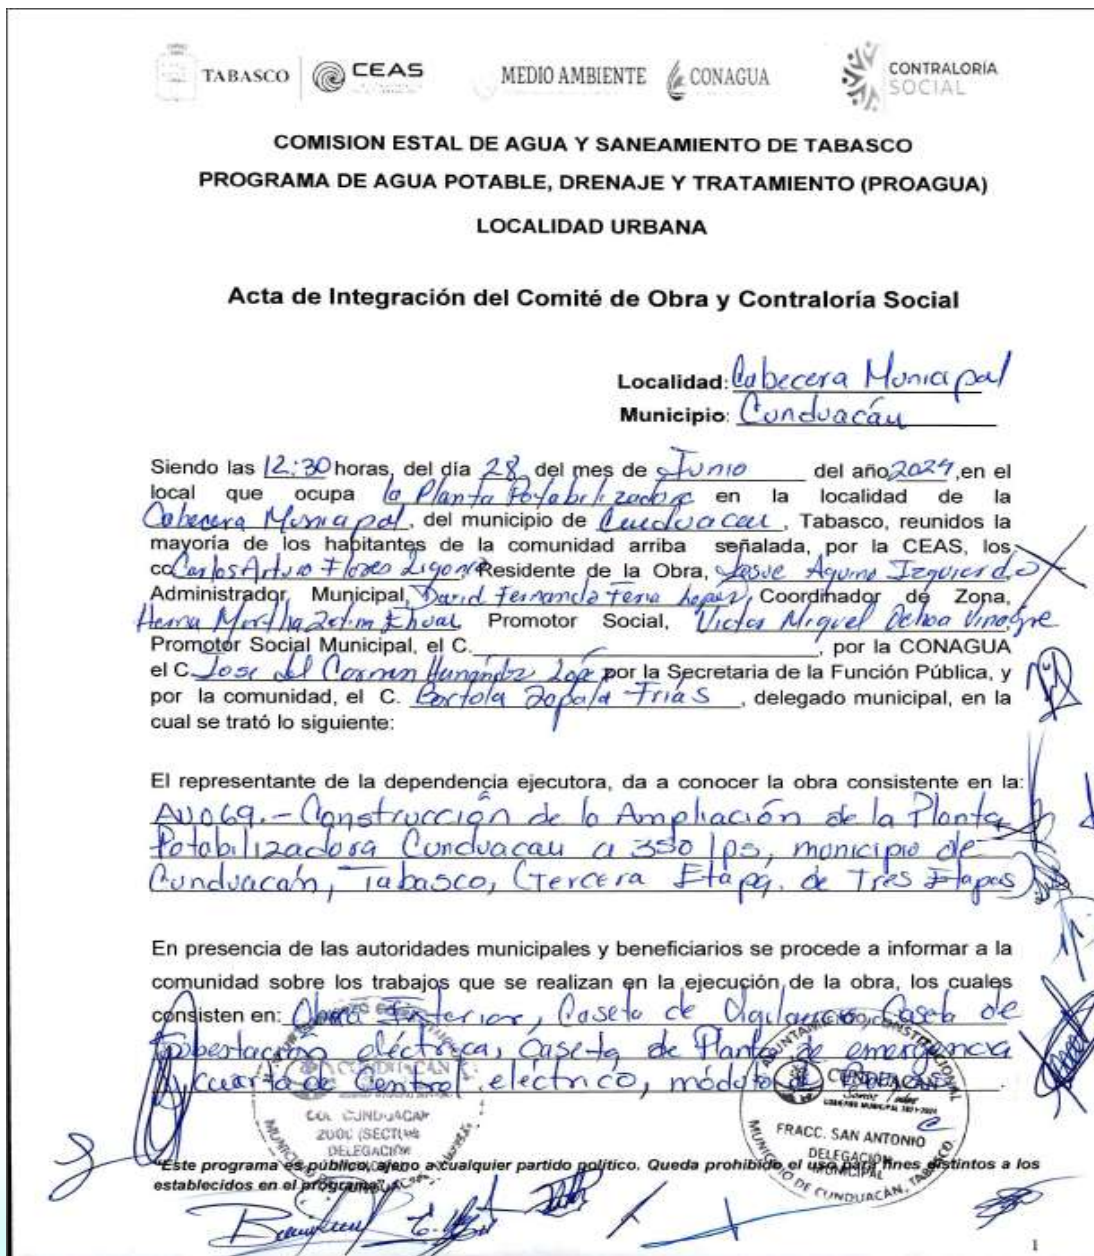 TABASCO CEAS MEDIO AMBIENTE CONAGUA CONTRALORÍA SOCIAL
COMISION ESTAL DE AGUA Y SANEAMIENTO DE TABASCO
PROGRAMA DE AGUA POTABLE, DRENAJE Y TRATAMIENTO (PROAGUA)
LOCALIDAD URBANA
Acta de Integración del Comité de Obra y Contraloría Social
Localidad: Cabecera Municipal
Municipio: Cunduacán
Siendo las 12:30 horas, del día 28 del mes de Junio del año 2024, en el
local que ocupa la Planta Potabilizadora en la localidad de la
Cabecera Municipal, del municipio de Cunduacan, Tabasco, reunidos la
mayoría de los habitantes de la comunidad arriba señalada, por la CEAS, los
cc Carlos Arturo Flores Residente de la Obra, Josue Aquino Izquierdo
Administrador Municipal, David Fernando Feria Lopez, Coordinador de Zona,
Promotor Social, Victor Miguel Ochoa Vinagre
Promotor Social Municipal, el C. , por la CONAGUA
el C. Jose del Carmen Hernández López por la Secretaria de la Función Pública, y
por la comunidad, el C. Bartola Zapata Frias, delegado municipal, en la
cual se trató lo siguiente:
El representante de la dependencia ejecutora, da a conocer la obra consistente en la:
AU069.- Construcción de la Ampliación de la Planta
Potabilizadora Cunduacan a 350 lps, municipio de
Cunduacán, Tabasco, (Tercera Etapa. de Tres Etapas)
En presencia de las autoridades municipales y beneficiarios se procede a informar a la
comunidad sobre los trabajos que se realizan en la ejecución de la obra, los cuales
consisten en: Obra Exterior, Caseta de Vigilancia, Caseta de
eléctrica, Caseta de Planta de emergencia
cuarto de Control eléctrico, módulo de
CUNDUACÁN
COL. CUNDUACAN
2000 (SECTOR
DELEGACIÓN
AYUNTAMIENTO CONSTITUCIONAL
CUNDUACÁN
GOBIERNO MUNICIPAL 2021-2024
FRACC. SAN ANTONIO
DELEGACIÓN
MUNICIPAL
MUNICIPIO DE CUNDUACÁN, TABASCO.
"Este programa es público, ajeno a cualquier partido político. Queda prohibido el uso para fines distintos a los
establecidos en el programa"
1